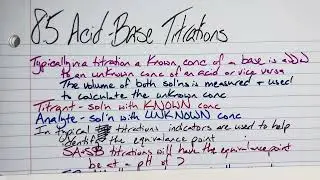 8.5 Acid-Base Titrations
Typically in a titration a known conc of a base is add
to an unknown conc of an acid or vice versa
The volume of both sol'ns is measured + used
to calculate the unknown conc
Titrant - sol'n with KNOWN conc
Analyte - sol'n with UNKNOWN conc
In typical titrations indicators are used to help
identify the equivalance point
SA+SB titrations will have the equivalence point
be at = pH of 7